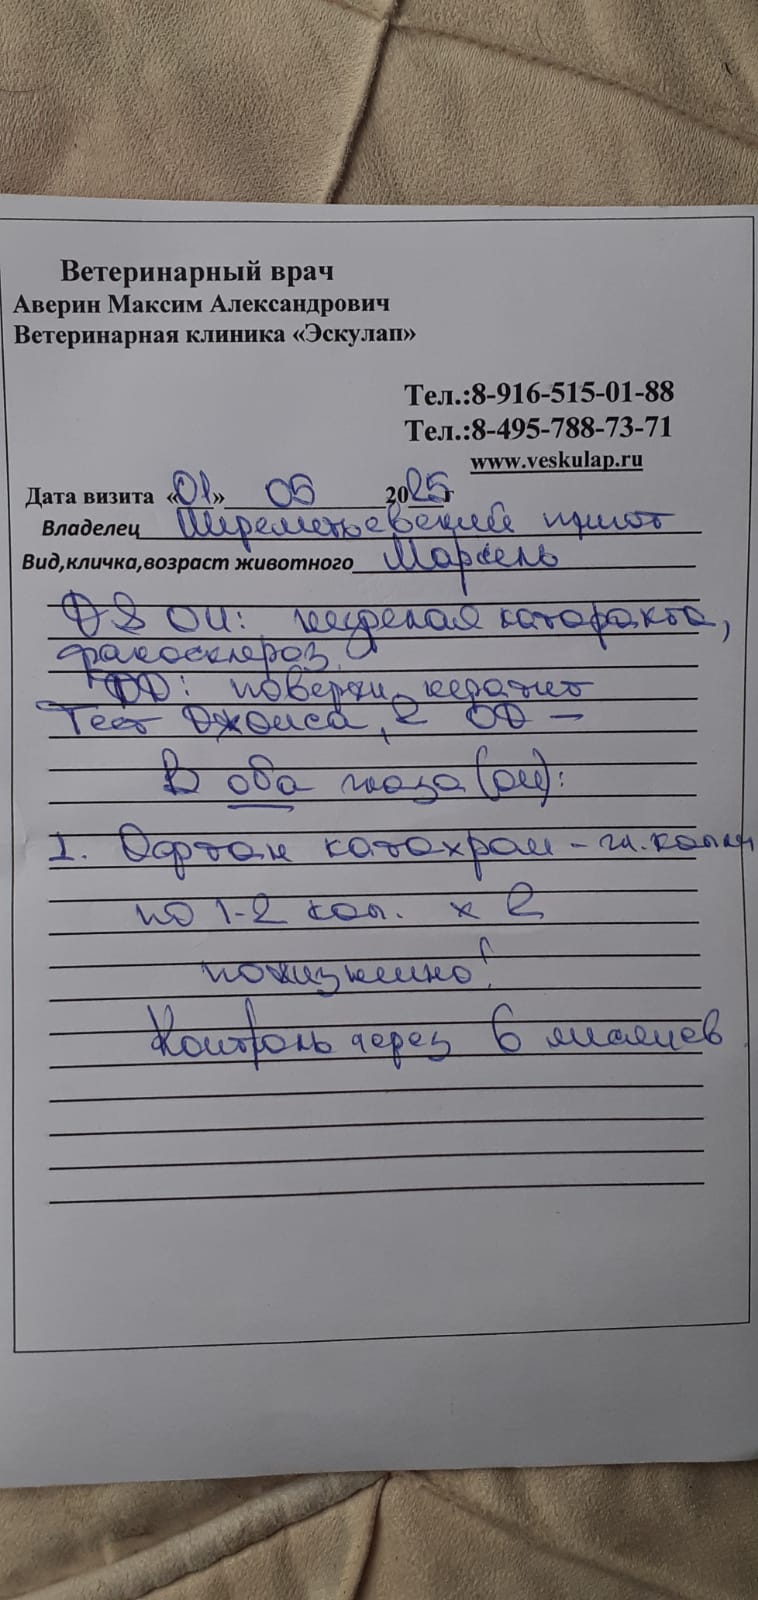 Ветеринарный врач
Аверин Максим Александрович
Ветеринарная клиника «Эскулап»
Тел.:8-916-515-01-88
Тел.:8-495-788-73-71
www.veskulap.ru
Дата визита «01» 05 2025г
Владелец Шереметьевский приют
Вид,кличка,возраст животного Марсель
DS OU: незрелая катаракта,
факосклероз.
OD: поверхн. кератит
Тест Джонса, 2 OD –
В оба глаза (OU):
1. Офтан катахром – гл. капли
по 1-2 кап. х 2
пожизненно!
Контроль через 6 месяцев